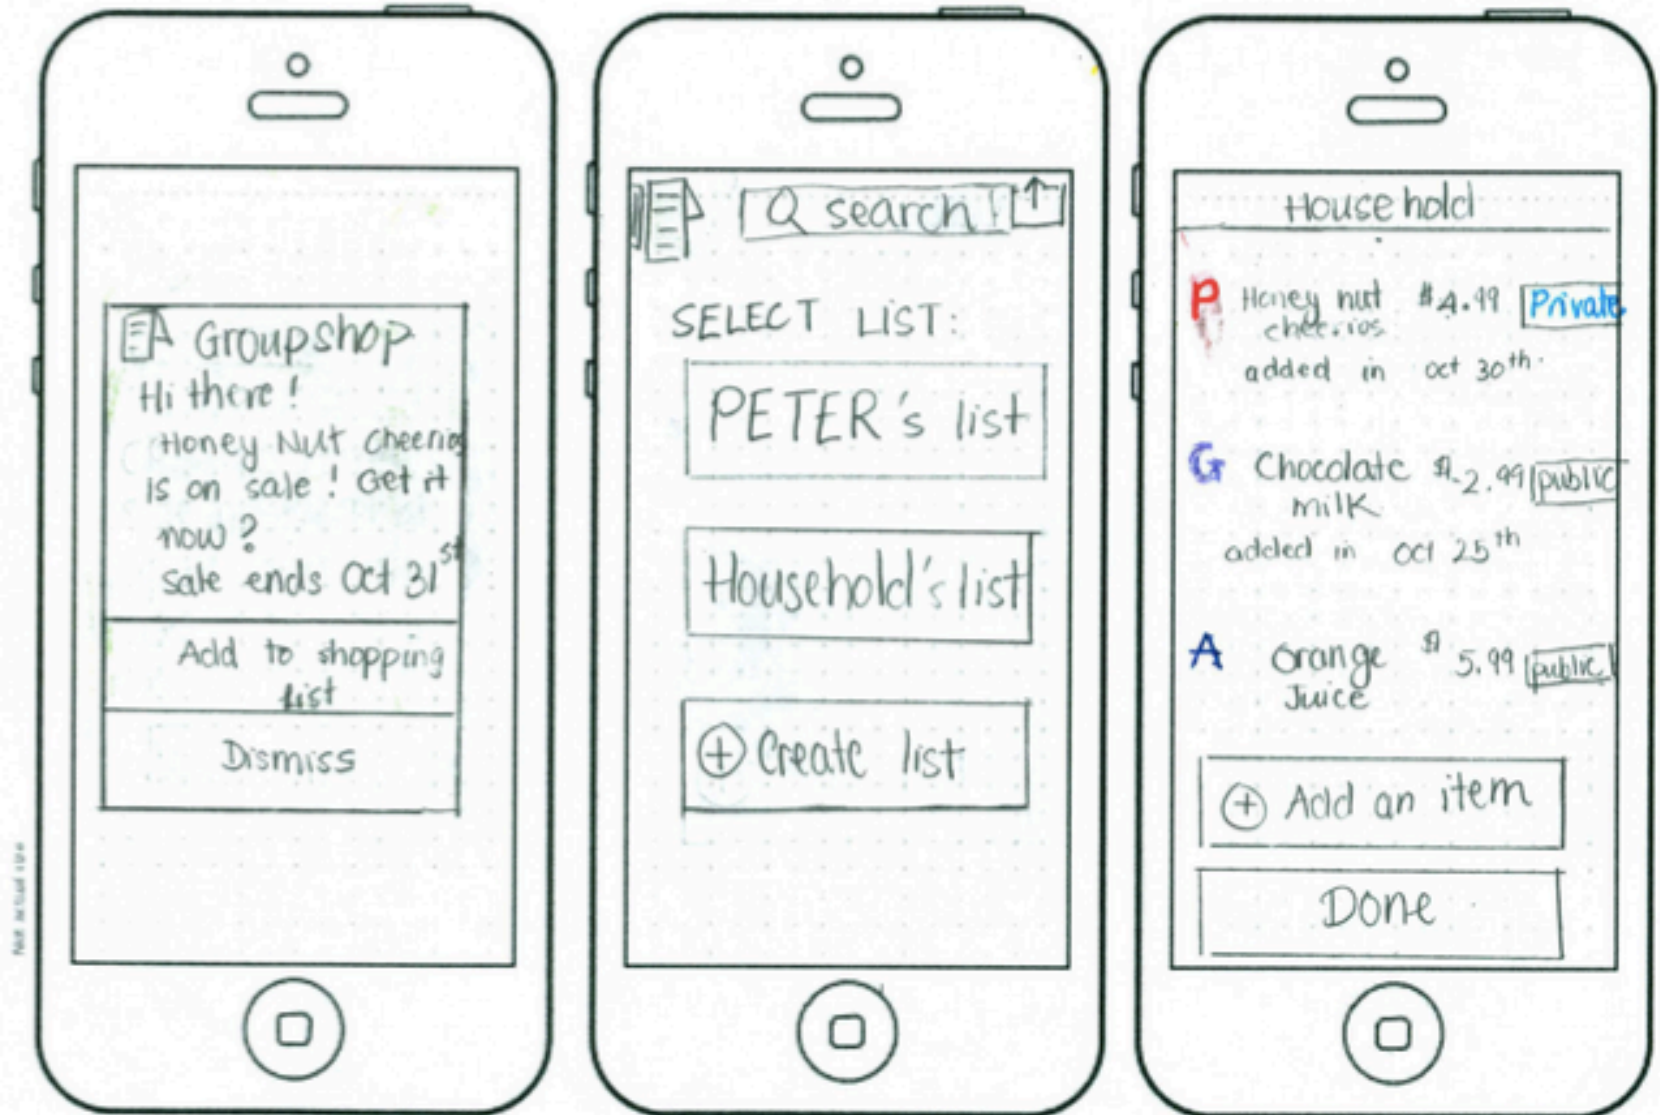 Groupshop
Hi there!
Honey Nut Cheerios
is on sale! Get it
now?
Sale ends Oct 31st
Add to shopping
list
Dismiss
Not actual size
search
SELECT LIST:
PETER's list
Household's list
+ Create list
Household
P Honey nut $4.99 Private
cheerios
added in oct 30th.
G Chocolate $2.99 public
milk
added in oct 25th
A Orange $5.99 public
Juice
+ Add an item
Done